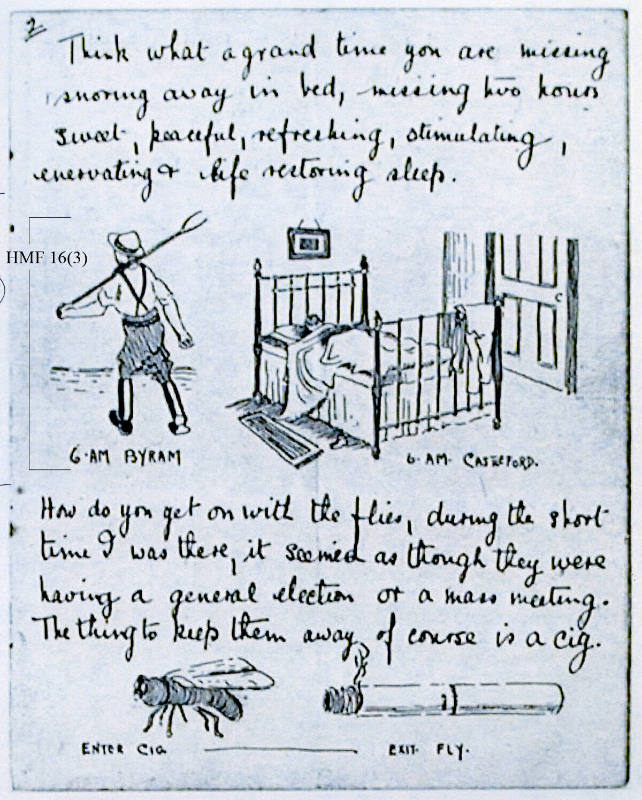 2
Think what a grand time you are missing
snoring away in bed, missing two hours
sweet, peaceful, refreshing, stimulating,
enervating & life restoring sleep.
HMF 16(3)
6.AM BYRAM
6.AM. CASTLEFORD.
How do you get on with the flies, during the short
time I was there, it seemed as though they were
having a general election or a mass meeting.
The thing to keep them away, of course is a cig.
ENTER CIG.
EXIT. FLY.